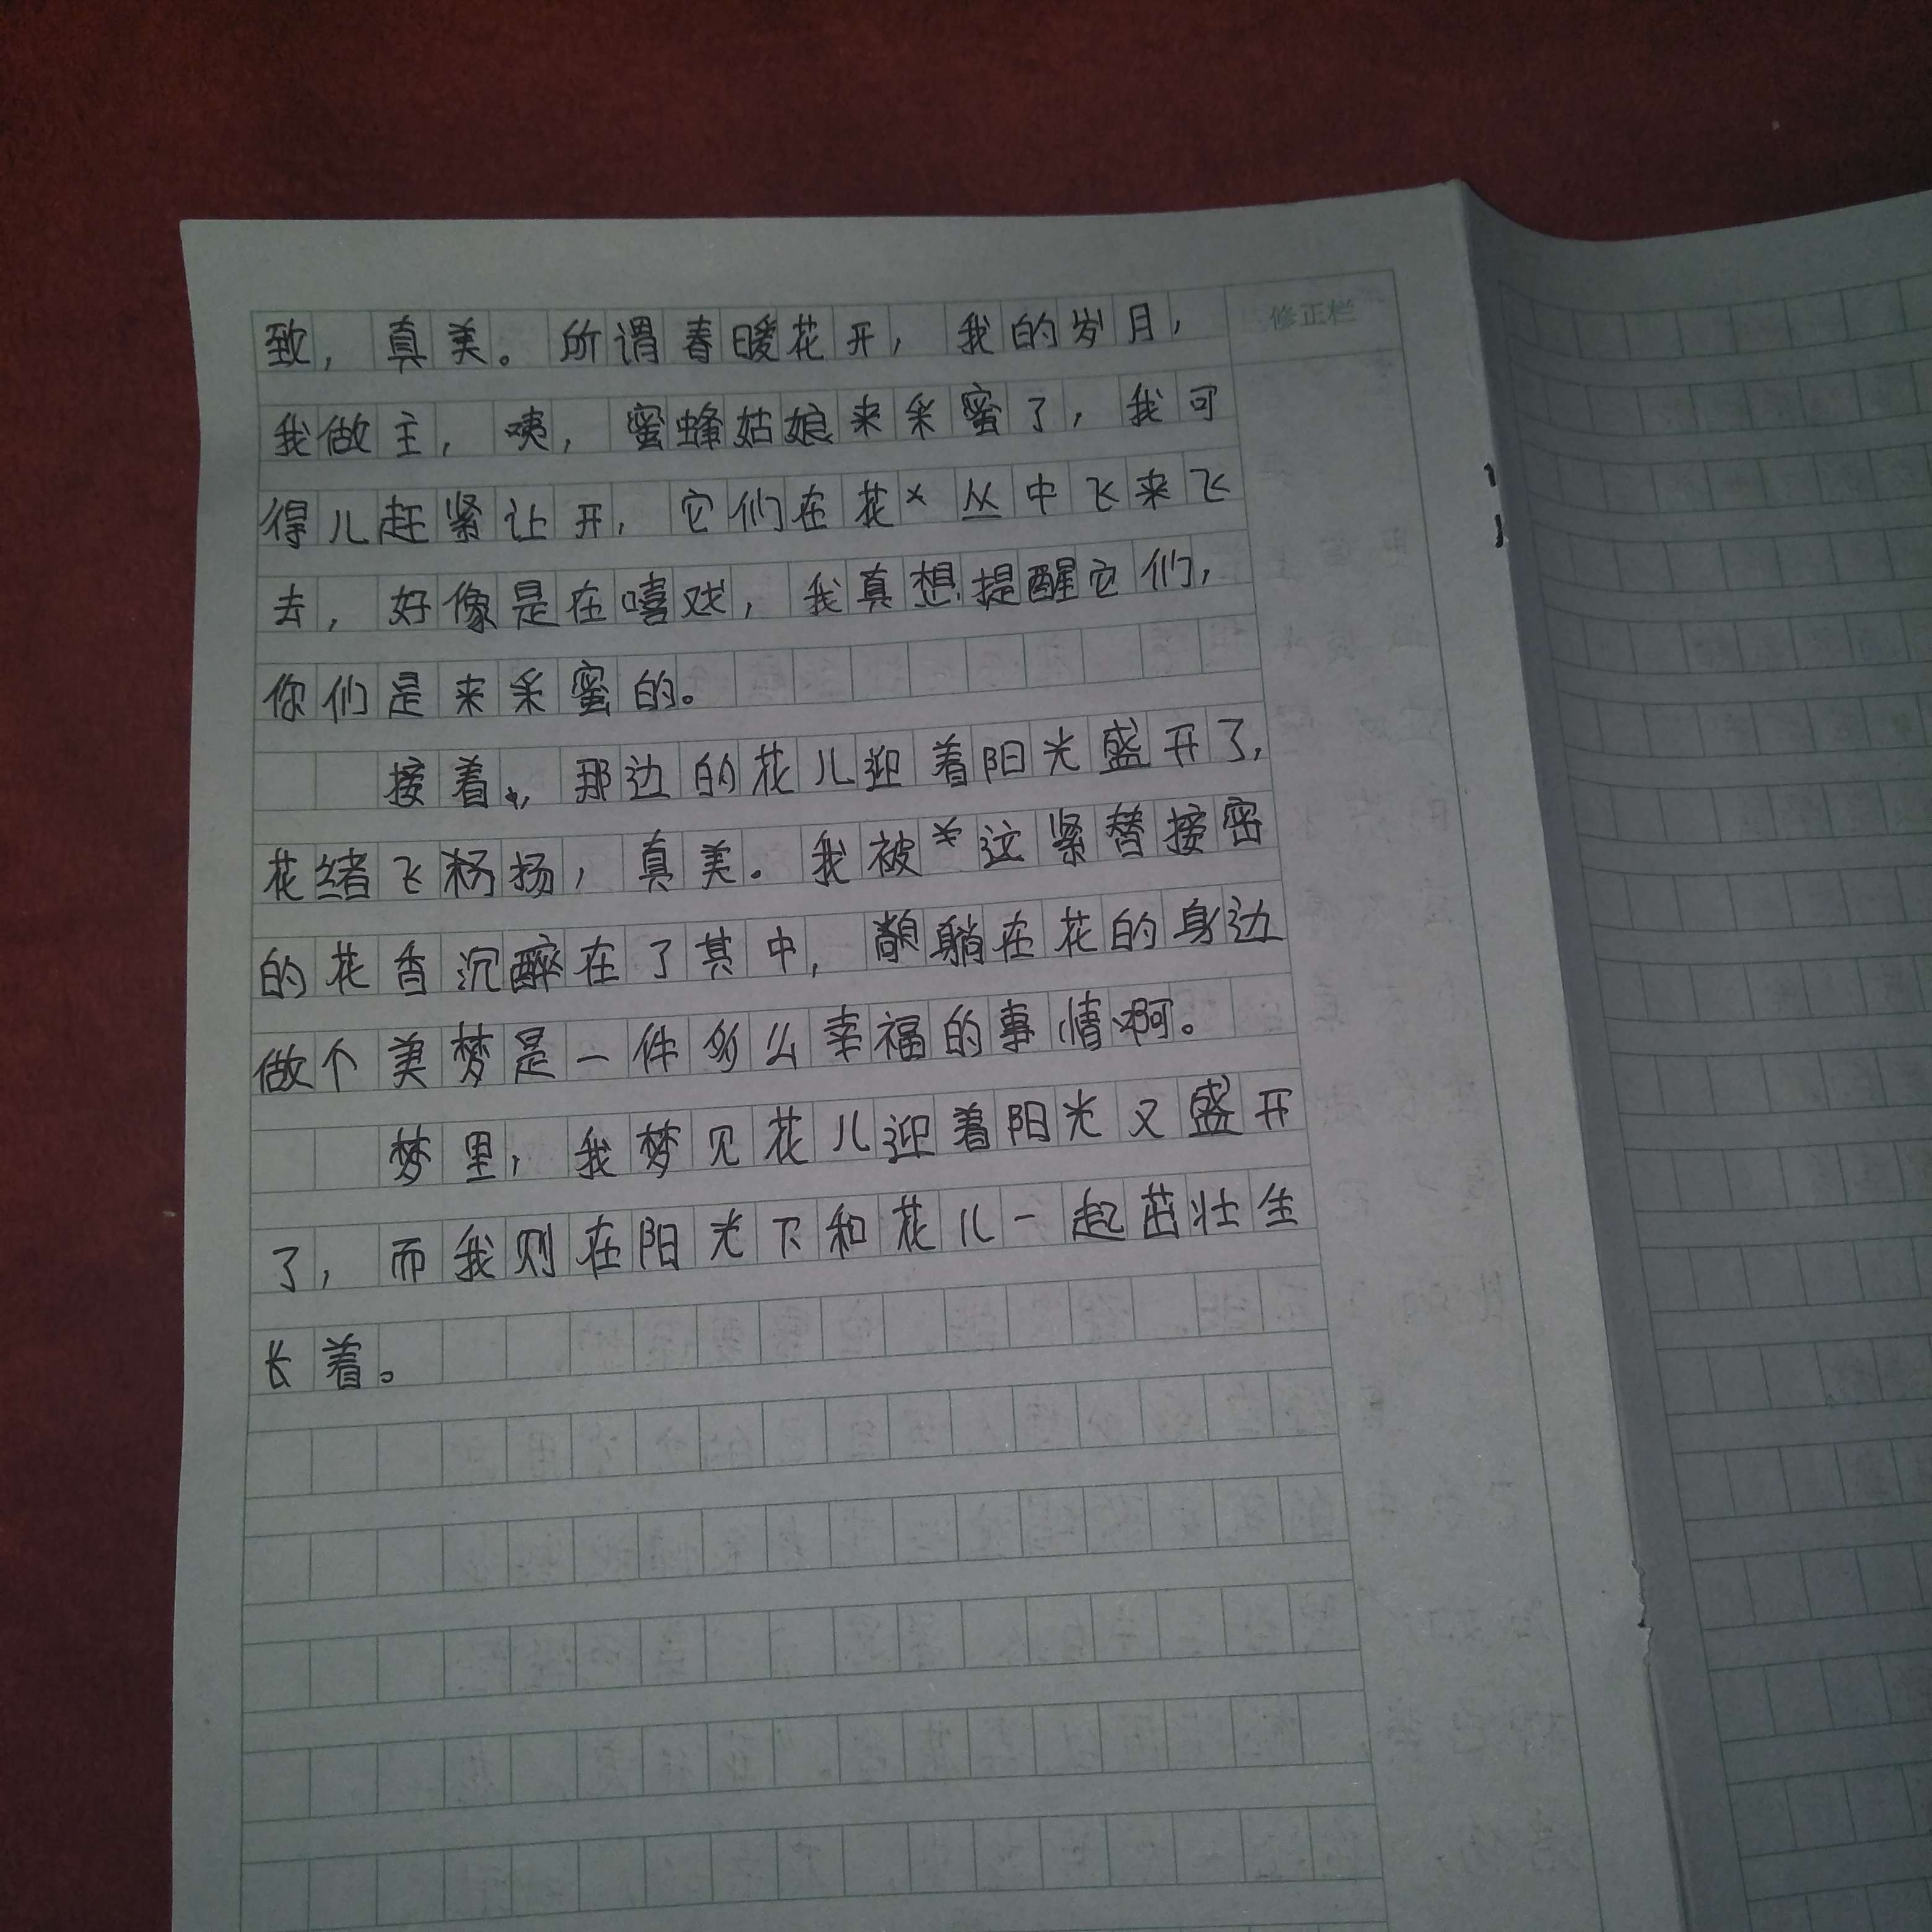 修正栏
致，真美。所谓春暖花开，我的岁月，
我做主，咦，蜜蜂姑娘来采蜜了，我可
得儿赶紧让开，它们在花丛中飞来飞
去，好像是在嘻戏，我真想提醒它们，
你们是来采蜜的。
接着，那边的花儿迎着阳光盛开了，
花绪飞杨扬，真美。我被这紧替接密
的花香沉醉在了其中，躺在花的身边
做个美梦是一件多么幸福的事情啊。
梦里，我梦见花儿迎着阳光又盛开
了，而我则在阳光下和花儿一起茁壮生
长着。